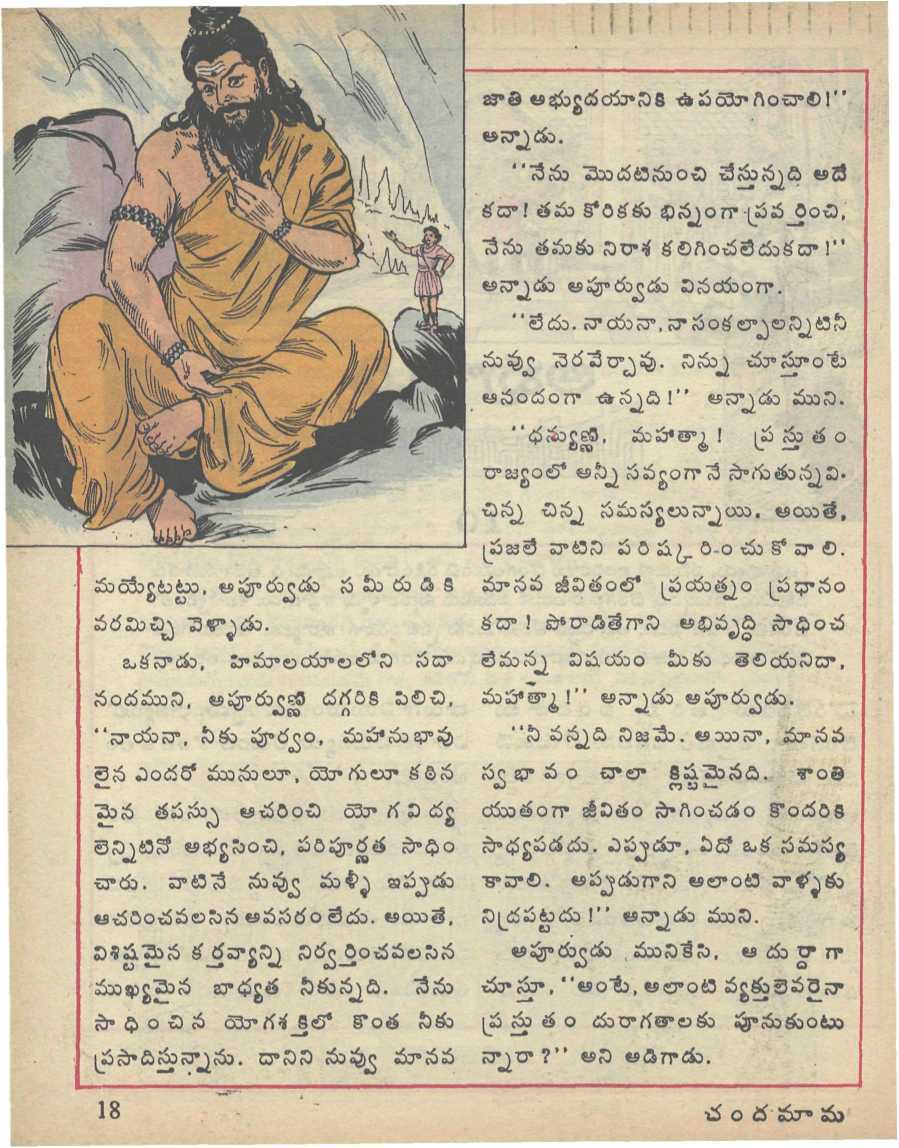 మయ్యేటట్టు, అపూర్వుడు సమీరుడికి
వరమిచ్చి వెళ్ళాడు.
ఒకనాడు, హిమాలయాలలోని సదా
నందముని, అపూర్వుణ్ణి దగ్గరికి పిలిచి,
‘‘నాయనా, నీకు పూర్వం, మహానుభావు
లైన ఎందరో మునులూ, యోగులూ కఠిన
మైన తపస్సు ఆచరించి యోగవిద్య
లెన్నిటినో అభ్యసించి, పరిపూర్ణత సాధిం
చారు. వాటినే నువ్వు మళ్ళీ ఇప్పుడు
ఆచరించవలసిన అవసరంలేదు. అయితే,
విశిష్టమైన కర్తవ్యాన్ని నిర్వర్తించవలసిన
ముఖ్యమైన బాధ్యత నీకున్నది. నేను
సాధించిన యోగశక్తిలో కొంత నీకు
ప్రసాదిస్తున్నాను. దానిని నువ్వు మానవ
జాతి అభ్యుదయానికి ఉపయోగించాలి!’’
అన్నాడు.
‘‘నేను మొదటినుంచి చేస్తున్నది అదే
కదా! తమ కోరికకు భిన్నంగా ప్రవర్తించి,
నేను తమకు నిరాశ కలిగించలేదుకదా!’’
అన్నాడు అపూర్వుడు వినయంగా.
‘‘లేదు. నాయనా, నా సంకల్పాలన్నిటినీ
నువ్వు నెరవేర్చావు. నిన్ను చూస్తూంటే
ఆనందంగా ఉన్నది!’’ అన్నాడు ముని.
‘‘ధన్యుణ్ణి, మహాత్మా! ప్రస్తుతం
రాజ్యంలో అన్నీ సవ్యంగానే సాగుతున్నవి.
చిన్న చిన్న సమస్యలున్నాయి. అయితే,
ప్రజలే వాటిని పరిష్కరించుకోవాలి.
మానవ జీవితంలో ప్రయత్నం ప్రధానం
కదా! పోరాడితేగాని అభివృద్ధి సాధించ
లేమన్న విషయం మీకు తెలియనిదా,
మహాత్మా!’’ అన్నాడు అపూర్వుడు.
‘‘నీ వన్నది నిజమే. అయినా, మానవ
స్వభావం చాలా క్లిష్టమైనది. శాంతి
యుతంగా జీవితం సాగించడం కొందరికి
సాధ్యపడదు. ఎప్పుడూ, ఏదో ఒక సమస్య
కావాలి. అప్పుడుగాని అలాంటి వాళ్ళకు
నిద్రపట్టదు!’’ అన్నాడు ముని.
అపూర్వుడు మునికేసి, ఆదుర్దాగా
చూస్తూ, ‘‘అంటే, అలాంటి వ్యక్తులెవరైనా
ప్రస్తుతం దురాగతాలకు పూనుకుంటు
న్నారా?’’ అని అడిగాడు.
18
చందమామ